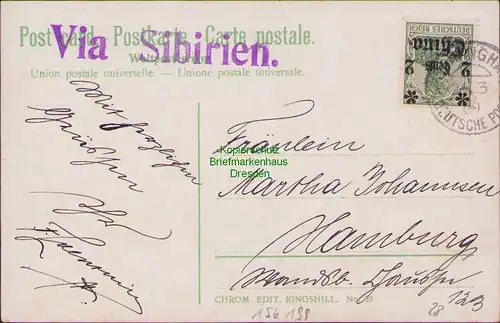 Post card. Postkarte. Carte postale.
Via Sibirien.
Weltpostverein
Union postale universelle. — Unione postale universale.
DEUTSCHES REICH
China
2 Cents 2
DEUTSCHE PO
Kopierschutz
Briefmarkenhaus
Dresden
Mit herzlichen
Grüssen
Ihr
Fräulein
Martha Johannsen
Hamburg
Wandsb. Chaussee
123
CHROM. EDIT. KINGSHILL. No. 33
28
156 198